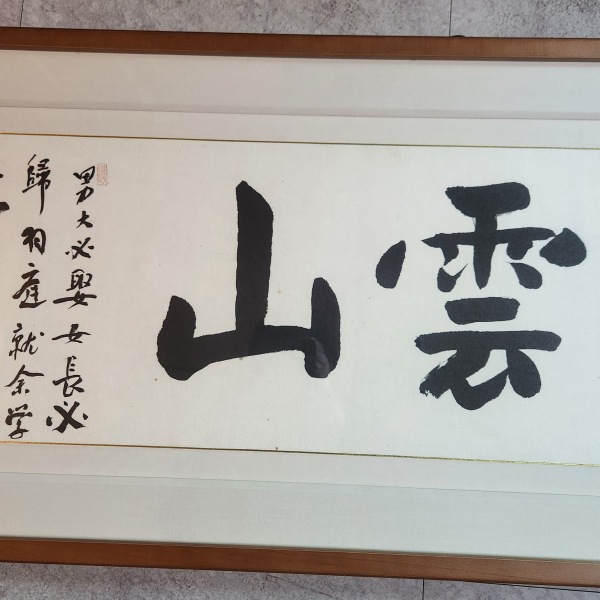 雲山
男大必娶女長必
歸羽庭就余学